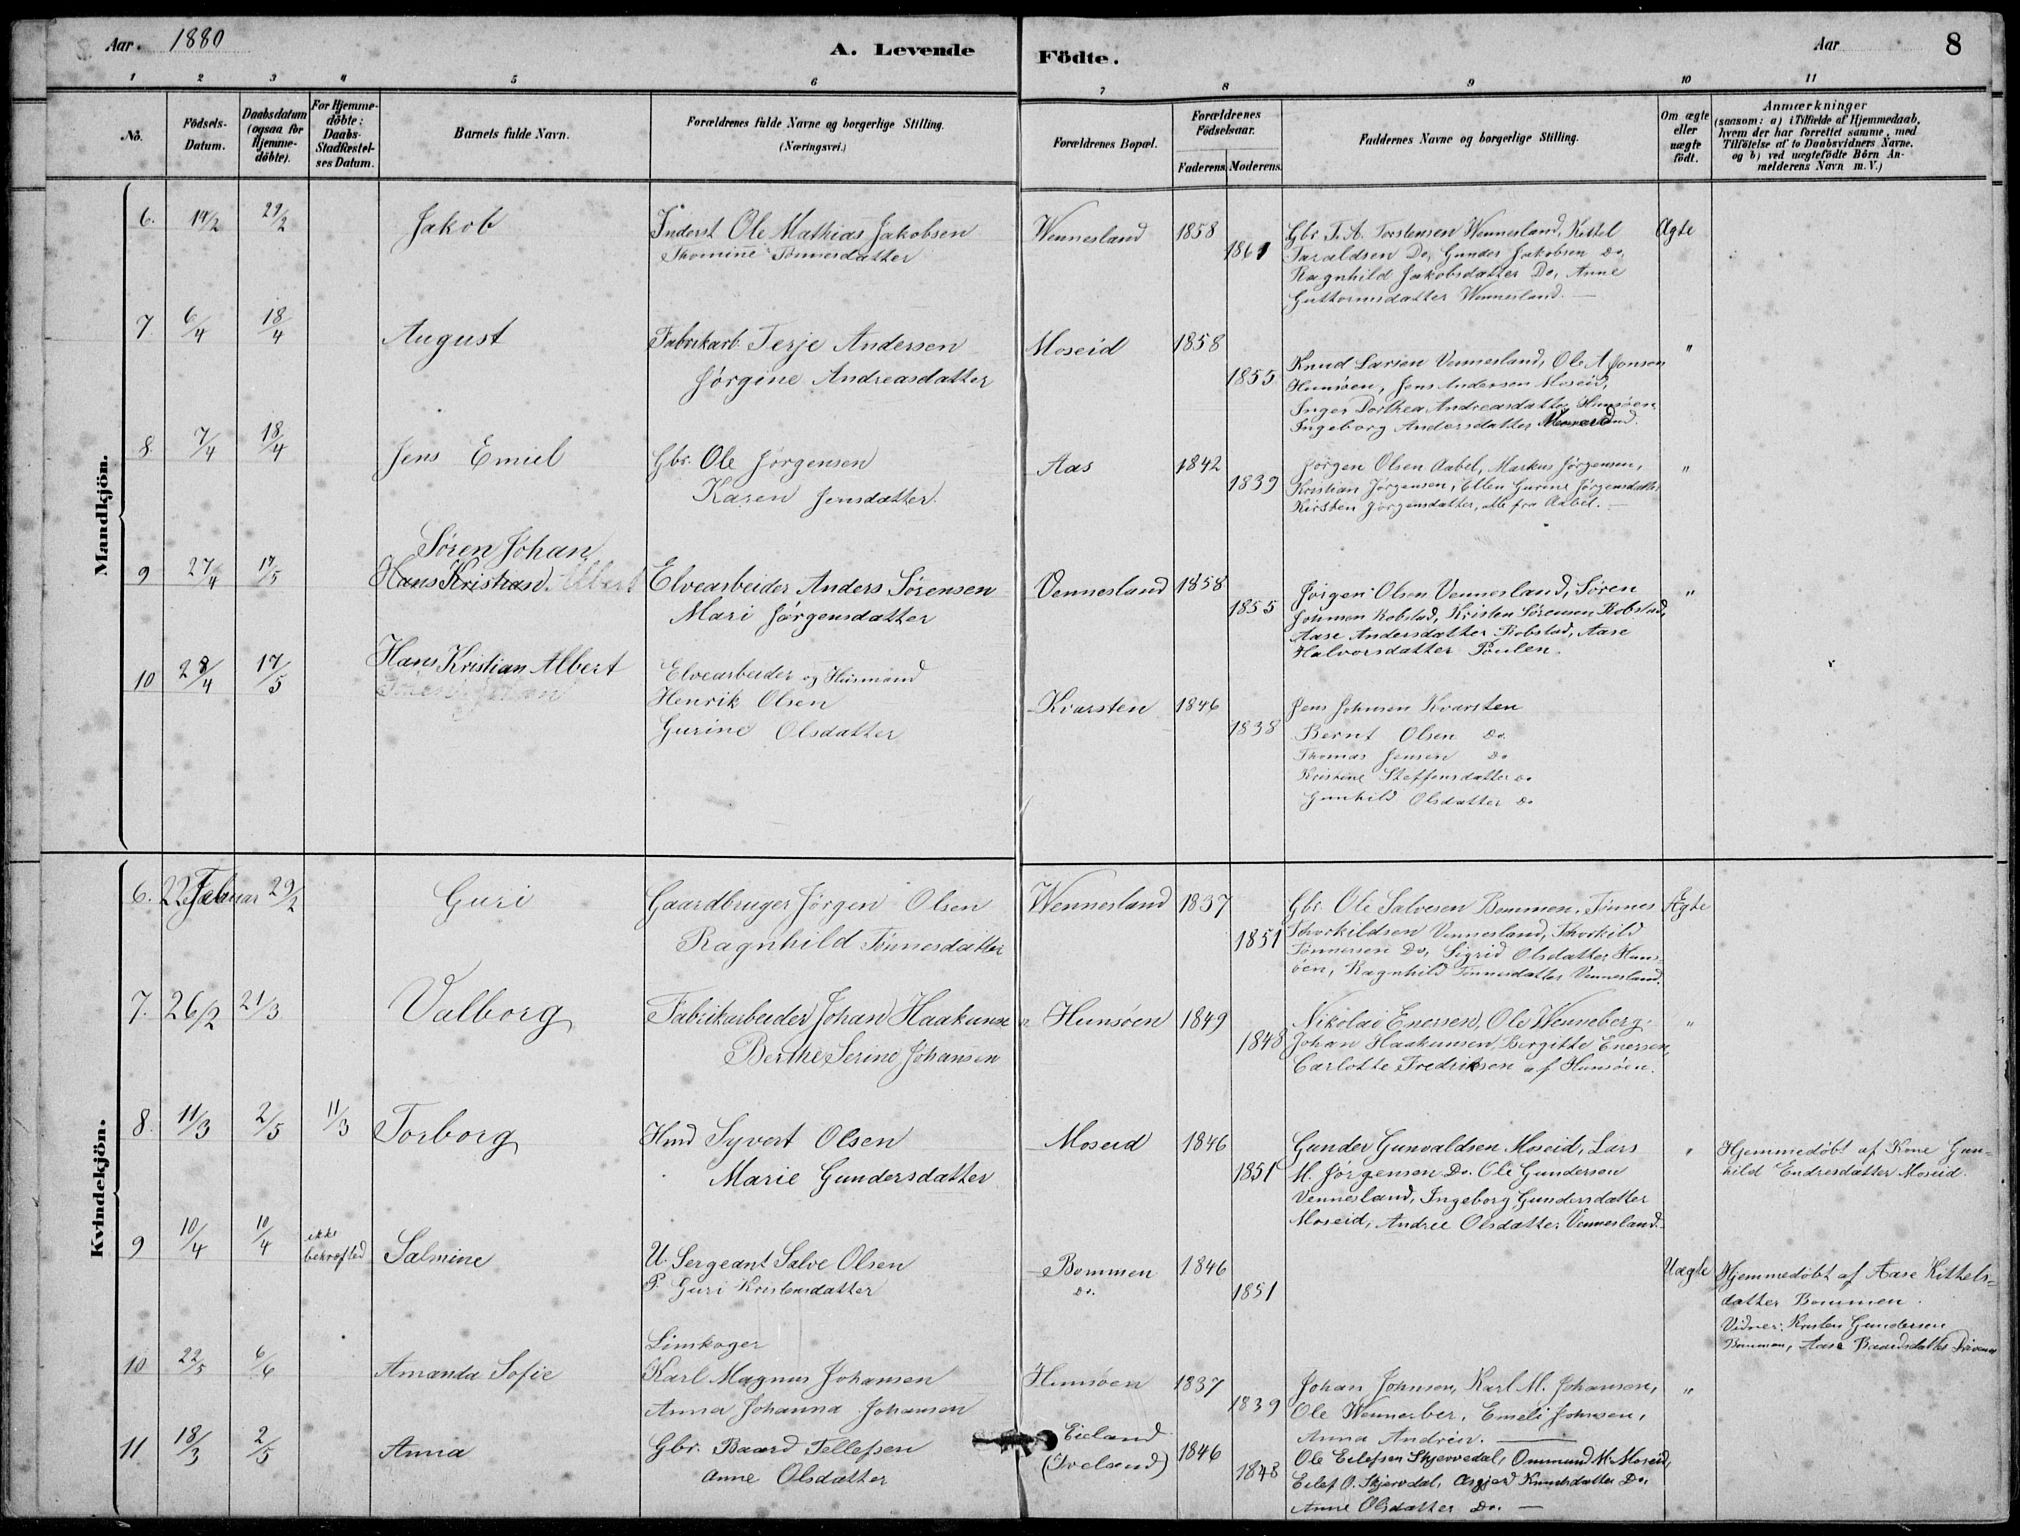 Aar. 1880
A. Levende
Födte.
Aar
8
1 2 3 4 5 6 7 8 9 10 11
No.
Födsels-
Datum.
Daabsdatum
(ogsaa for
Hjemme-
döbte).
For Hjemme-
döbte:
Daabs-
Stadfæstel-
ses Datum.
Barnets fulde Navn.
Forældrenes fulde Navne og borgerlige Stilling.
(Næringsvei.)
Forældrenes Bopæl.
Forældrenes
Födselsaar.
Faderens. Moderens.
Faddernes Navne og borgerlige Stilling.
Om ægte
eller
uægte
födt.
Anmærkninger
(saasom: a) i Tilfælde af Hjemmedaab,
hvem der har forrettet samme, med
Tilföielse af to Daabsvidners Navne,
og b) ved uægtefödte Börn An-
melderens Navn m. V.)
Mandkjön.
6. 14/2 29/2 Jakob
Inderst Ole Mathias Jakobsen
Thomine Tønnesdatter
Wennesland 1858
1861
Gbr. T. A. Torstensen Wennesland, Kittel
Taraldsen Do, Gunder Jakobsen Do,
Ragnhild Jakobsdatter Do, Anne
Guttormsdatter Wennesland. —
Ægte
7 6/4 18/4 August
Fabrikarb. Terje Andersen
Jørgine Andreasdatter
Moseid 1858
1855
Knud Larsen Vennesland, Ole A Jonsen
Hunsøen, Jens Andersen Moseid,
Inger Dorthea Andreasdatter Hunsøen,
Ingeborg Andersdatter
"
8 7/4 18/4 Jens Emiel
Gbr. Ole Jørgensen
Karen Jensdatter.
Aas 1842
1839
Jørgen Olsen Aabel, Markus Jørgensen,
Kristian Jørgensen, Ellen Gurine Jørgensdatter,
Kirsten Jørgensdatter, alle fra Aabel. —
"
9 27/4 17/5 Søren Johan
Hans Kristian Albert
Elvearbeider Anders Sørensen
Mari Jørgensdatter
Vennesland 1858
1855
Jørgen Olsen Vennesland, Søren
Johnsen Robstad, Kristen Sørensen Robstad,
Aase Andersdatter Robstad, Aase
Halvorsdatter
"
10 28/4 17/5 Hans Kristian Albert
Søren Johan
Elvearbeider og Husmand
Henrik Olsen
Gurine Olsdatter
Kvarsten 1846
1838
Jens Johnsen Kvarsten
Bernt Olsen Do
Thomas Jensen Do
Kristine Steffensdatter Do
Gunhild Olsdatter Do
Kvindekjön.
6. 22 Februar 29/2 Guri
Gaardbruger Jørgen Olsen
Ragnhild Tønnesdatter
Wennesland 1837
1851
Gbr. Ole Salvesen Bommen, Tønnes
Thorkildsen Vennesland, Thorkild
Tønnessen Do, Sigrid Olsdatter Huns-
øen, Ragnhild Tønnesdatter Vennesland.
Ægte
7. 26/2 21/3 Valborg
Fabrikarbeider Johan Haakunsen
Berthe Serine Johansen
Hunsøen 1849
1848
Nikolai Enersen, Ole Wenneberg,
Johan Haakunsen, Bergitte Enersen,
Carlotte Fredriksen af Hunsøen.
"
8. 11/3 2/5 11/3 Torborg
Hmd Syvert Olsen
Marie Gundersdatter
Moseid 1846
1851
Gunder Gunvaldsen Moseid, Lars
M. Jørgensen Do. Ole Gundersen
Vennesland, Ingeborg Gundersdatter
Moseid, Andree Olsdatter Vennesland.
"
Hjemmedøbt af Kone Gun-
hild Endresdatter Moseid.
9 10/4 10/4 ikke
bekræfted Salmine
U. Sergeant Salve Olsen
P. Guri Kristensdatter
Bommen 1846
Do. 1851
Uægte
Hjemmedøbt af Aase Kittels-
datter Bommen.
Vidner: Kristen Gundersen
Bommen, Aase Baardsdatter Drivenes
10 22/5 6/6 Amanda Sofie
Limkoger
Karl Magnus Johansen
Anna Johanna Johansen
Hunsøen 1837
1839
Johan Johnsen, Karl M. Johansen,
Ole Wennerber, Emeli Johnsen,
Anna Andrén. —
"
11 18/3 2/5 Anna
Gbr. Baard Tellefsen
Anne Olsdatter
Eieland
(Iveland) 1846
1848
Ole Eilefsen Skjervedal, Ommund M. Moseid,
Eilef O. Skjervdal, Asgjerd Knudsdatter Do,
Anne Olsdatter Do. —